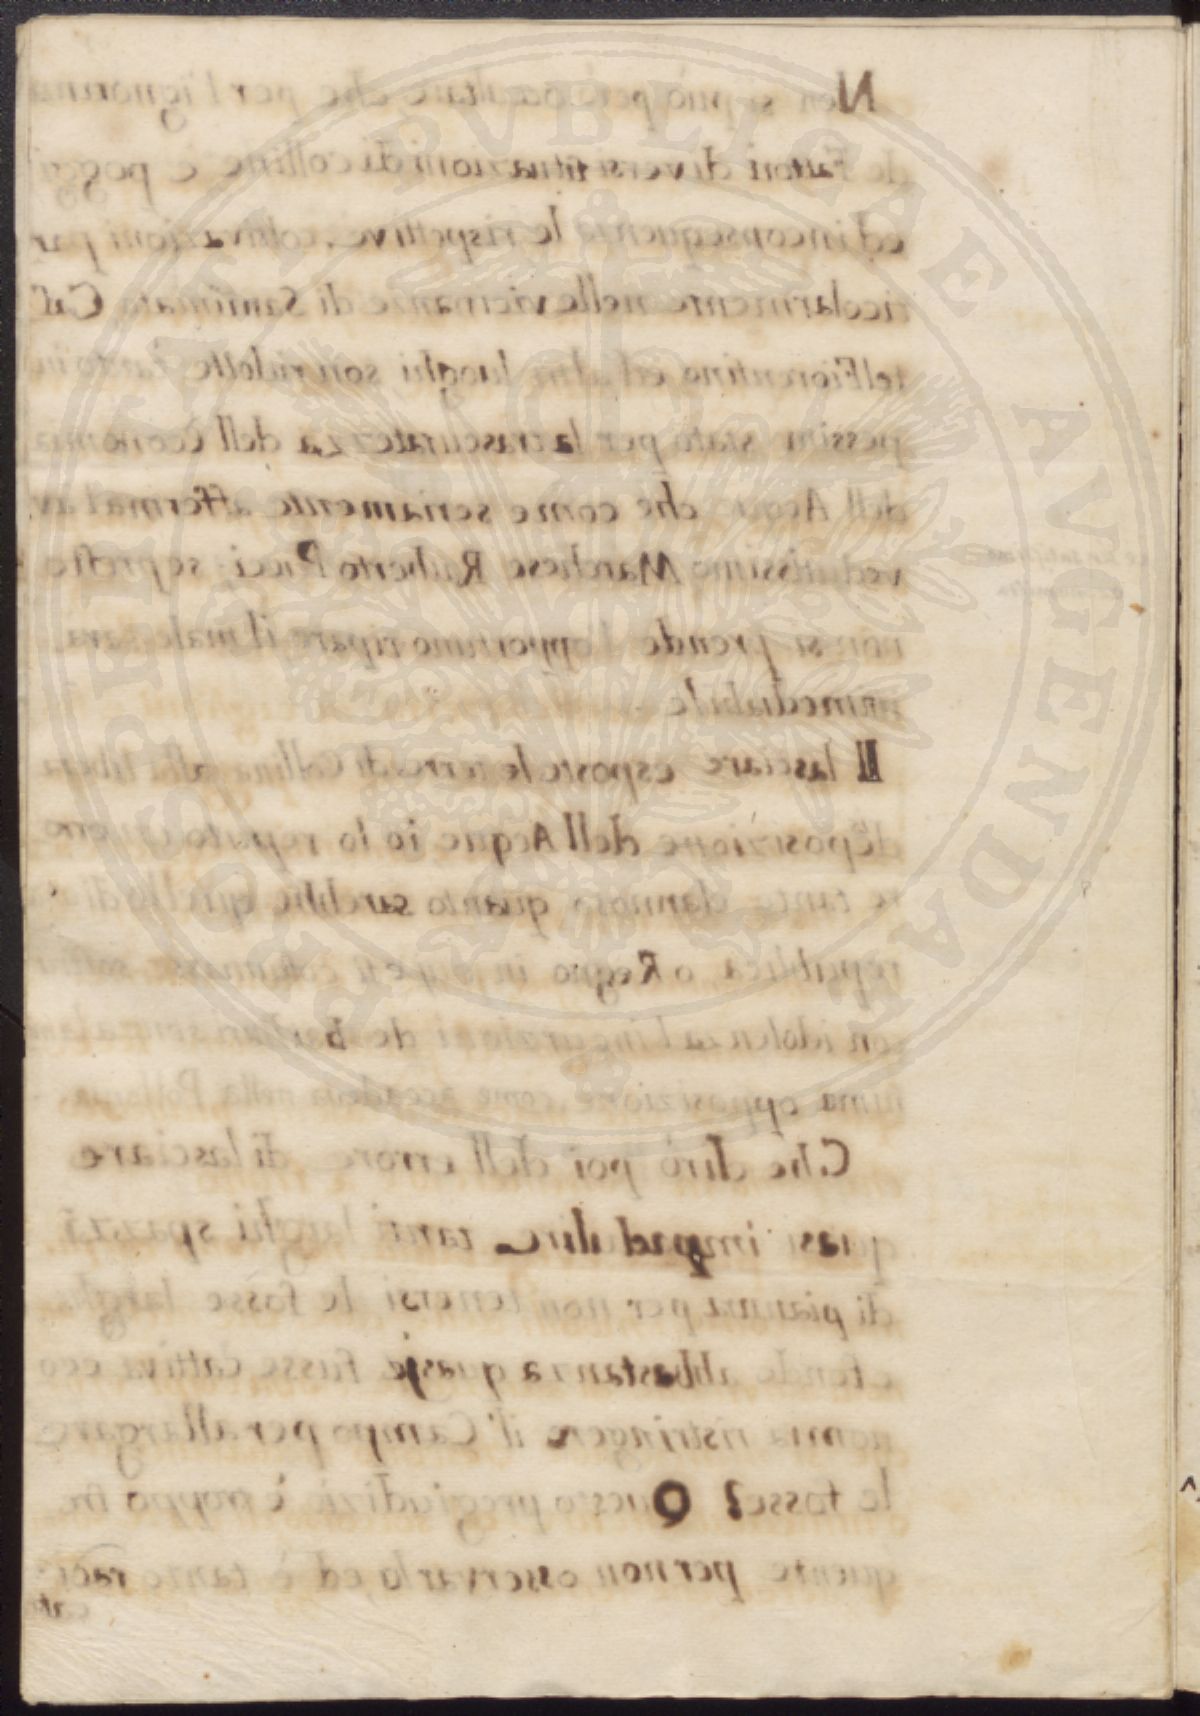 Non si può però occultare che per l'ignoran
de Fattori diversi situazioni di colline e poggi
ed in conseguenza le rispettive coltivazioni par
ticolarmente nelle vicinanze di Samminiato Cas
tel Fiorentino ed altri luoghi son ridotte
pessimo stato per la trascuratezza dell Economia
dell Acque che come seriamente afferma l'av
vedutissimo Marchese Ruberto Pucci; se presto
non si prende l'opportuno riparo il male sara
irrimediabile
Il lasciare esposte le terre di Collina alla libera
disposizione dell Acque io lo reputo
te tanto dannoso quanto sarebbe quello di
republica, o Regno in cui si
con idolenza l'incursioni de Barbari senz alcu
nima opposizione come accadeva nella Pollonia.
Che dirò poi dell errore di lasciare
quasi impadulire tanti larghi spazzi
di pianura per non tenersi le fosse larghe
e fonde abbastanza quasi che fusse cattiva eco
nomia ristringere il Campo per allargare
le fosse? Questo pregiudizio è troppo fre
quente per non osservarlo, ed è tanto radi
cato
PROSPERITATI PVBLICAE AVGENDAE